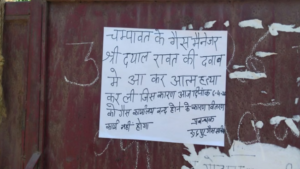 चम्पावत के गैस मैनेजर
श्री दयाल रावत की दबाव
मे आ कर आत्महत्या
कर ली जिस कारण आज दिनांक
को गैस कार्यालय बन्द होने के कारण वितरण
कार्य नहीं होगा
3